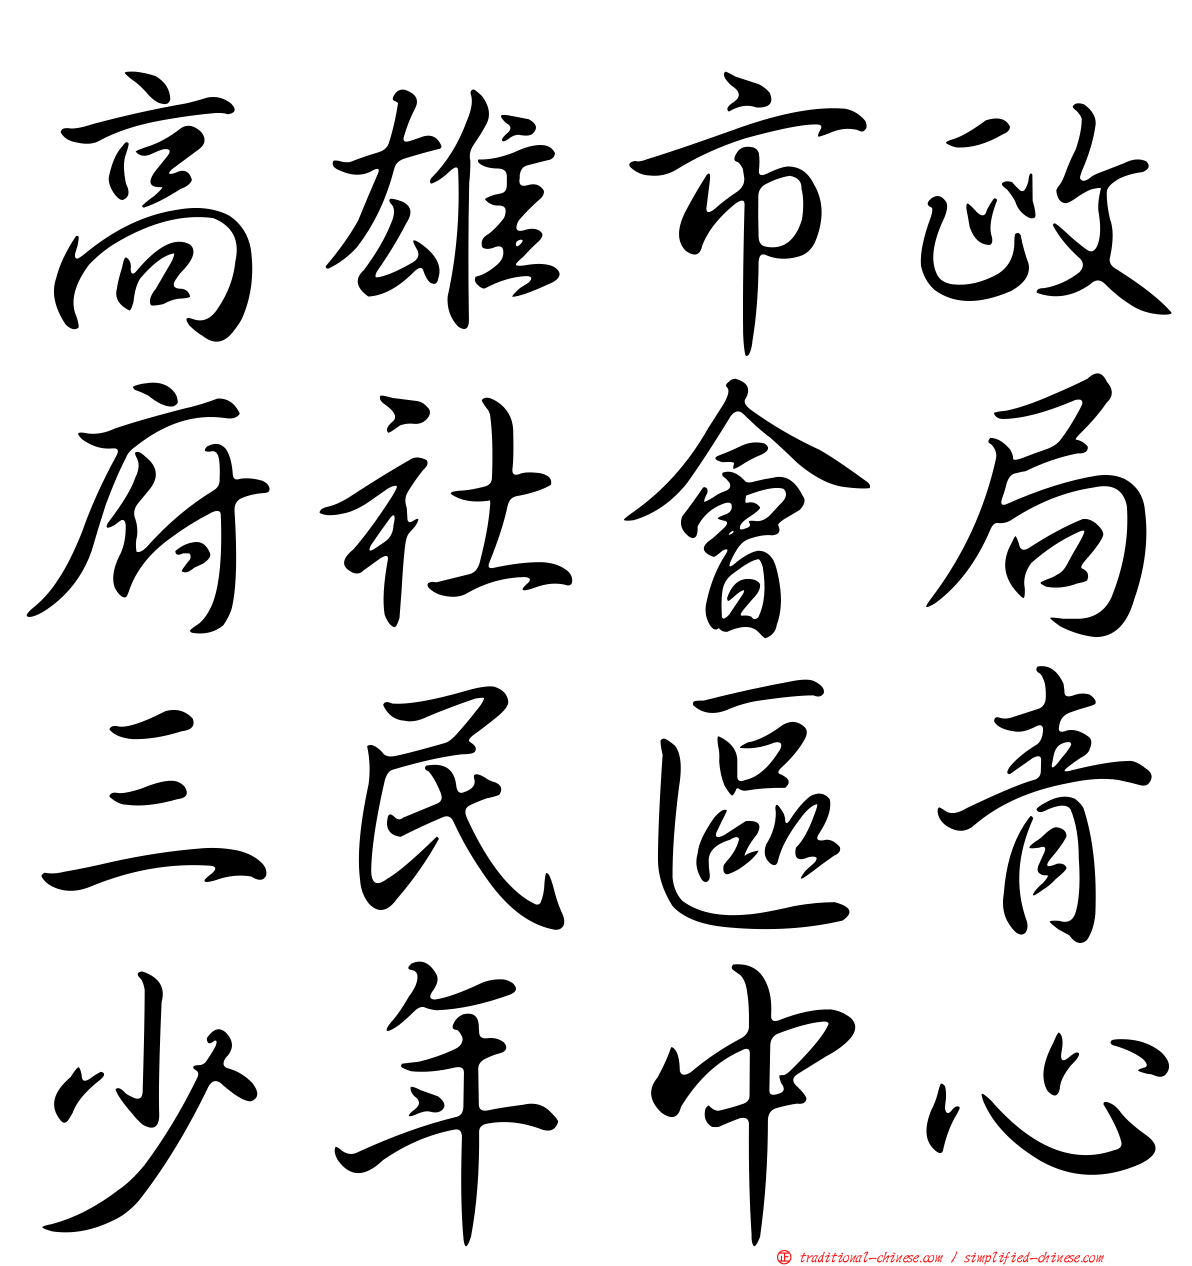 高雄市政
府社會局
三民區青
少年中心
正 traditional-chinese.com / simplified-chinese.com